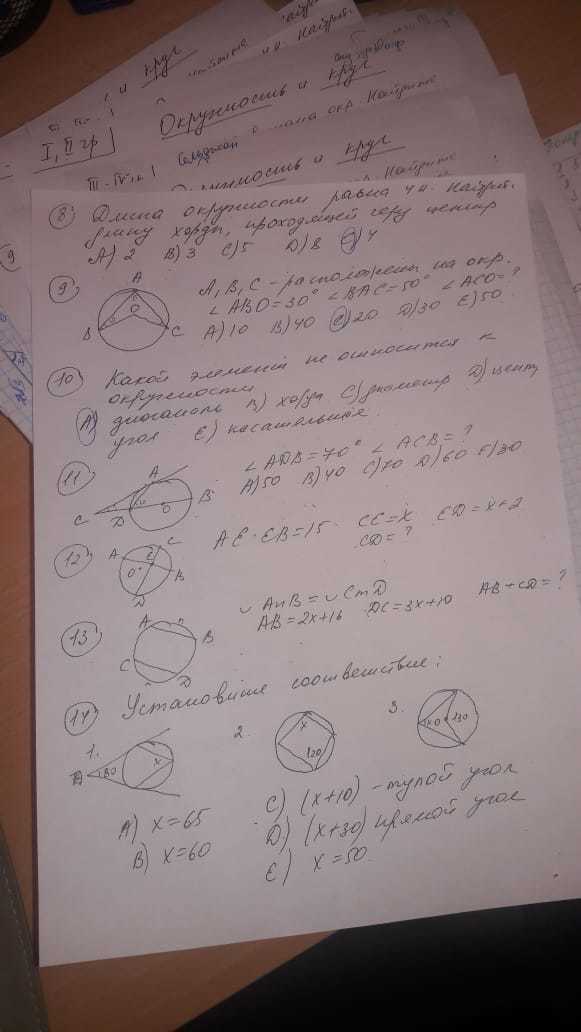 и круг
Окружность и круг
I, II гр
III-IV
и круг
8) Длина окружности равна 4π. Найдит.
длину хорды, проходящей через центр
A) 2 B) 3 C) 5 D) 8 E) 4
9) A, B, C - расположены на окр.
∠ABO=30° ∠BAC=50° ∠ACO=?
A) 10 B) 40 C) 20 D) 30 E) 50
A
O
B
C
10) Какой элемент не относится к
окружности
A) диагональ B) хорда C) диаметр D) центр
угол E) касательная
11) ∠ADB=70° ∠ACB=?
A) 50 B) 40 C) 70 D) 60 E) 30
A
B
C
D
O
12) AE·EB=15 CE=x ED=x+2
CD=?
A
C
E
O
B
D
13) ∪AnB=∪CmD
AB=2x+16 DC=3x+10 AB+CD=?
A
B
C
D
14) Установите соответствие:
1. 2. 3.
A 80 x
x 120
x 130
A) x=65
B) x=60
C) (x+10) - тупой угол
D) (x+30) прямой угол
E) x=50